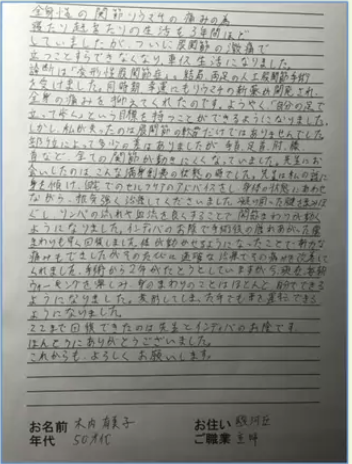 全身性の関節リウマチの痛みの為
寝たり起きたりの生活を3年間ほど
していましたが、ついに股関節の激痛で
立つことすらできなくなり、車イス生活になりました。
診断は"変形性股関節症"。結局、両足の人工股関節手術
を受けました。同時期、幸運にもリウマチの新薬が開発され、
全身の痛みを抑えてくれたのです。ようやく"自分の足で
立って歩く"という目標を持つことができるようになりました。
しかし、私が失ったのは股関節の軟骨だけではありませんでした
部位によって多少の差はありましたが 手首、足首、肘、膝
首など 全ての関節が動きにくくなっていました。先生にお
会いしたのはこんな の状態の時でした。先生は私の話に
耳を傾け、自宅でのセルフケアのアドバイスをし、身体の状態にあわせ
ながら、根気強く治療してくださいました。 腱を揉みほ
ぐし リンパの流れや血流を良くすることで 関節まわりが動く
ようになりました。インディバのお陰で手術後の腫れあがった傷
まわりも早く回復しました。体が動かせるようになったことで新たな
痛みもでましたが そのたびに適確な治療でその痛みを改善して
くれました。手術から2年がたとうとしていますが 今現在、毎朝
ウォーキングを楽しみ、身のまわりのことはほとんど自分でできる
ようになりました。変形してしまった手でも車を運転できる
ようになりました。
ここまで回復できたのは先生とインディバのお陰です。
ほんとうにありがとうございました。
これからも、よろしくお願いします。
お名前 木内 有美子 お住い 駿河区
年代 50才代 ご職業 主婦